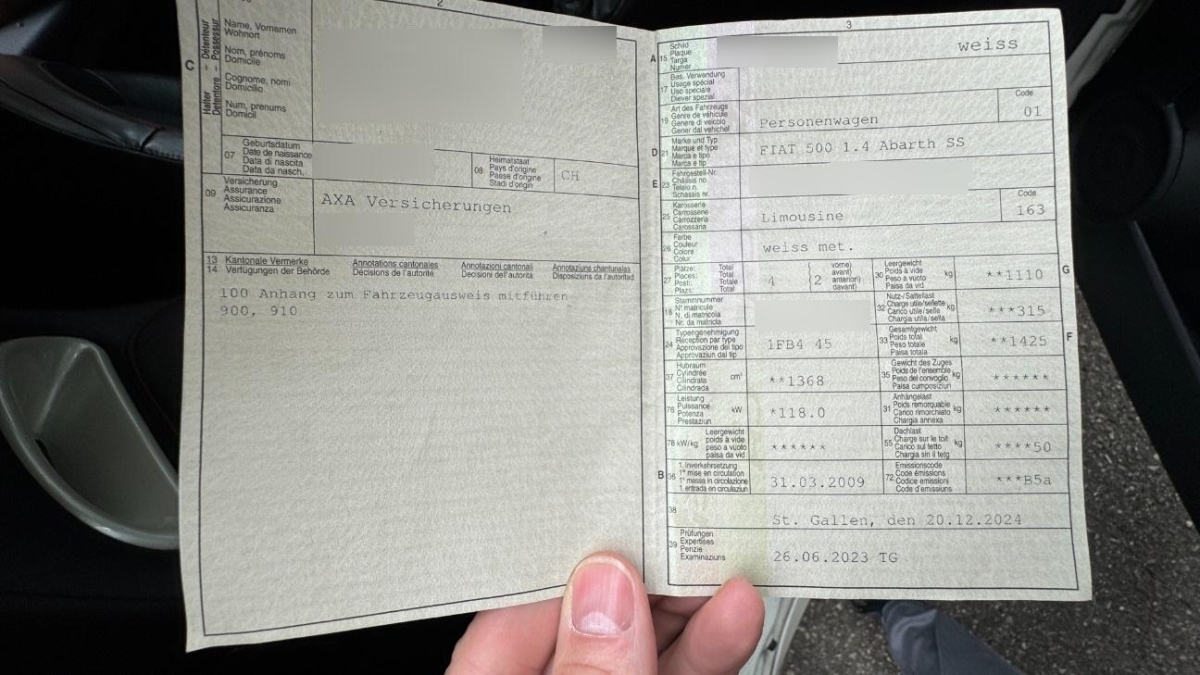 2
C
Halter - Détenteur
Detentore - Possessur
Name, Vornamen
Wohnort
Nom, prénoms
Domicile
Cognome, nomi
Domicilio
Num, prenums
Domicil
07
Geburtsdatum
Date de naissance
Data di nascita
Data da nasch.
08
Heimatstaat
Pays d'origine
Paese d'origine
Stadi d'origin
CH
09
Versicherung
Assurance
Assicurazione
Assicuranza
AXA Versicherungen
13 Kantonale Vermerke Annotations cantonales Annotazioni cantonali Annotaziuns chantunalas
14 Verfügungen der Behörde Décisions de l'autorité Decisioni dell'autorità Disposiziuns da l'autoritad
100 Anhang zum Fahrzeugausweis mitführen
900, 910
3
A 15
Schild
Plaque
Targa
Numer
weiss
17
Bes. Verwendung
Usage spécial
Uso speciale
Diever spezial
19
Art des Fahrzeugs
Genre de véhicule
Genere di veicolo
Gener dal vehichel
Personenwagen
Code
01
D 21
Marke und Typ
Marque et type
Marca e tipo
Marca e tip
FIAT 500 1.4 Abarth SS
E 23
Fahrgestell-Nr.
Châssis no
Telaio n.
Schassis nr.
25
Karosserie
Carrosserie
Carrozzeria
Carossaria
Limousine
Code
163
26
Farbe
Couleur
Colore
Colur
weiss met.
27
Plätze: Total
Places: Total
Posti: Totale
Plazs: Total
4
(2
vorne)
avant)
anteriori)
davant)
30
Leergewicht
Poids à vide
Peso a vuoto
Paisa da vid
kg
**1110
G
18
Stammnummer
N° matricule
N. di matricola
Nr. da matricla
32
Nutz-/Sattellast
Charge utile/sellette
Carico utile/sella
Chargia utila/sella
kg
***315
24
Typengenehmigung
Réception par type
Approvazione del tipo
Approvaziun dal tip
1FB4 45
33
Gesamtgewicht
Poids total
Peso totale
Paisa totala
kg
**1425
F
37
Hubraum
Cylindrée
Cilindrata
Cilindrada
cm³
**1368
35
Gewicht des Zuges
Poids de l'ensemble
Peso del convoglio
Paisa cumposiziun
kg
******
76
Leistung
Puissance
Potenza
Prestaziun
kW
*118.0
31
Anhängelast
Poids remorquable
Carico rimorchiato
Chargia annexa
kg
******
78 kW/kg
Leergewicht
poids à vide
peso a vuoto
paisa da vid
******
55
Dachlast
Charge sur le toit
Carico sul tetto
Chargia sin il tetg
kg
****50
B 36
1. Inverkehrsetzung
1re mise en circulation
1a messa in circolazione
1. entrada en circulaziun
31.03.2009
72
Emissionscode
Code émissions
Codice emissioni
Code d'emissiuns
***B5a
38
St. Gallen, den 20.12.2024
39
Prüfungen
Expertises
Perizie
Examinaziuns
26.06.2023 TG